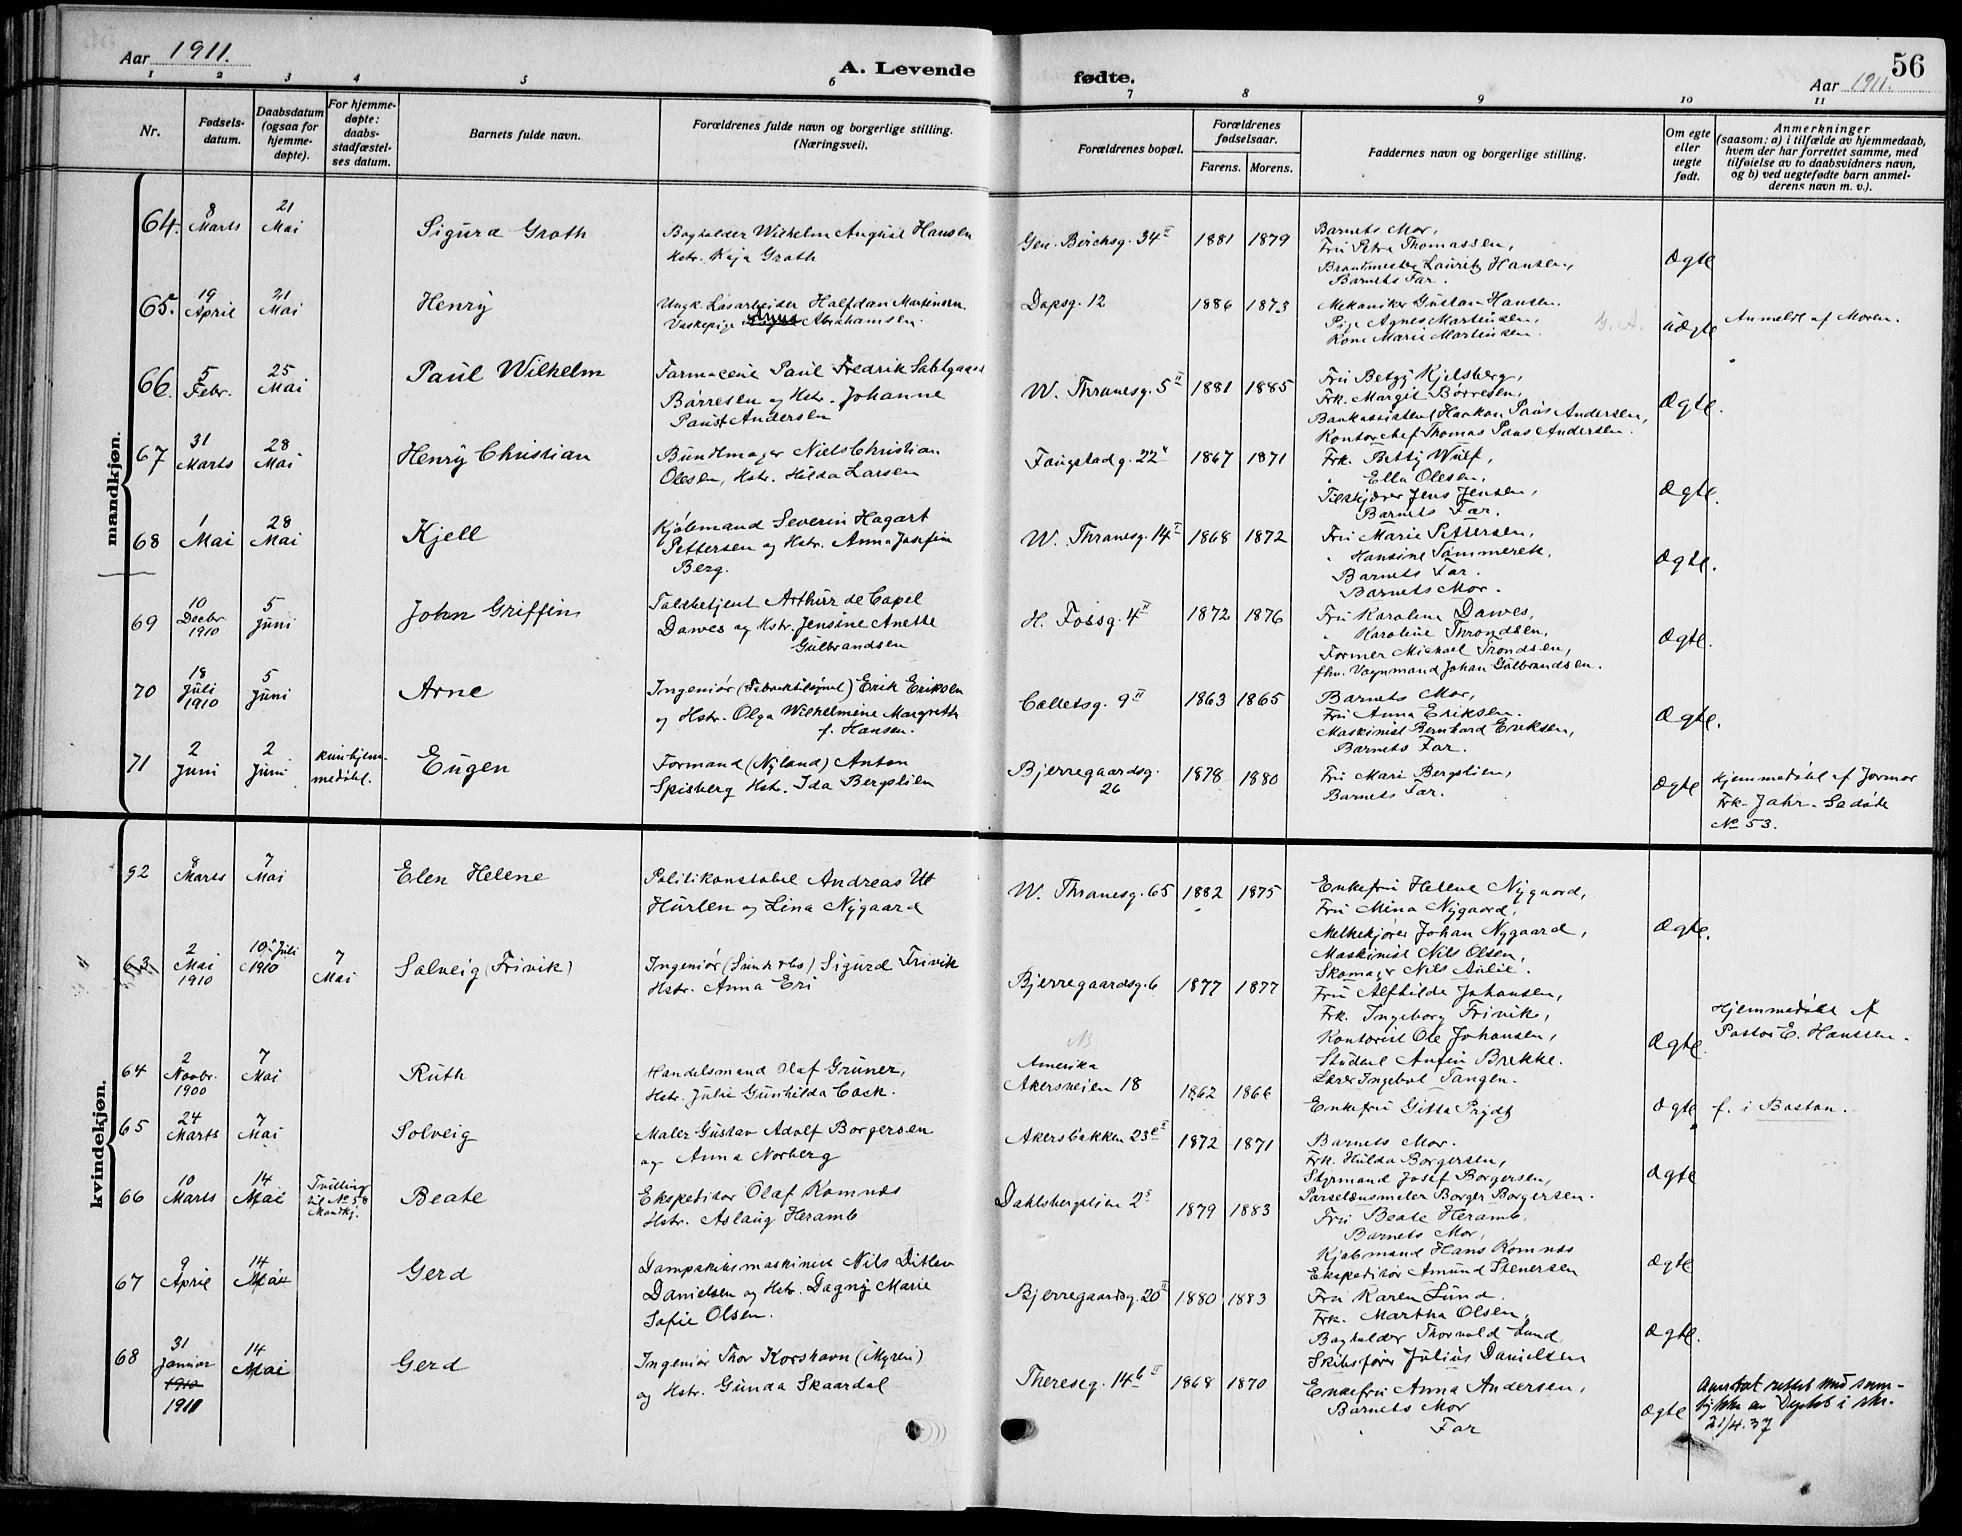 Aar 1911.
A. Levende fødte.
Aar 1911.
56
1 2 3 4 5 6 7 8 9 10 11
Nr.
Fødsels-
datum.
Daabsdatum
(ogsaa for
hjemme-
døpte).
For hjemme-
døpte:
daabs-
stadfæstel-
ses datum.
Barnets fulde navn.
Forældrenes fulde navn og borgerlige stilling.
(Næringsvei).
Forældrenes bopæl.
Forældrenes
fødselsaar.
Farens. Morens.
Faddernes navn og borgerlige stilling.
Om egte
eller
uegte
født.
Anmerkninger
(saasom: a) i tilfælde av hjemmedaab,
hvem der har forrettet samme, med
tilføielse av to daabsvidners navn,
og b) ved uegtefødte barn anmel-
derens navn m. v.).
mandkjøn.
64.
8
Marts
21
Mai
Sigurd Groth
Bogholder Wilhelm August Hansen
Hstr. Kaja Groth
Gen. Birchsg. 34 II
1881
1879
Barnets Mor,
Fru Petra Thomassen,
Brandmester Lauritz Hansen,
Barnets Far.
Ægte
65.
19
April
21
Mai
Henry
Ungk. Løsarbeider Halfdan Martinsen
Vaskepige Abrahamsen.
Dopsg. 12
1886
1873
Mekaniker Gustav Hansen.
Pige Agnes Martinsen,
Kone Marie Martinsen.
G. A.
uægte
Anmeldt af Moren.
66.
5
Febr.
25
Mai
Paul Wilhelm
Farmaceut Paul Fredrik
Børresen og Hstr. Johanne
Paust Andersen
W. Thranesg. 5 II
1881
1885
Fru Betzy Kjelsberg,
Frk. Margit Børresen,
Bankassistent Haakon Paus Andersen,
Kontorchef Thomas Paus Andersen.
Ægte.
67
31
Marts
28
Mai
Henry Christian
Bundtmager Niels Christian
Olesen, Hstr. Hilda Larsen
Faugstadg. 22
1867
1871
Frk. Betty Wulf,
" Ella Olesen,
Tilskjærer Jens Jensen,
Barnets Far.
Ægte.
68
1
Mai
28
Mai
Kjell
Kjøbmand Severin Hagart
Pettersen og Hstr. Anna Josefine
Berg.
W. Thranesg. 14 II
1868
1872
Fru Marie Pettersen,
" Hansine
Barnets Far.
Barnets Mor.
Ægte.
69
10
Decbr
1910
5
Juni
John Griffin
Toldbetjent Arthur de Capel
Dawes og Hstr. Jensine Anette
Gulbrandsen
H. Fossg. 4 II
1872
1876
Fru Karoline Dawes,
" Karoline Throndsen,
Former Michael Trondsen,
fhv. Vognmand Johan Gulbrandsen.
Ægte.
70
18
Juli
1910
5
Juni
Arne
Ingeniør Erik Eriksen
og Hstr. Olga Wilhelmine Margreth
f. Hansen.
Colletsg. 9 II
1863
1865
Barnets Mor,
Fru Anna Eriksen.
Maskinist Bernhard Eriksen,
Barnets Far.
Ægte.
71
2
Juni
2
Juni
kun hjem-
medøbt.
Eugen
Formand (Nyland) Anton
Spisberg Hstr. Ida Bergslien
Bjerregaardsg.
26
1878
1880
Fru Mari Bergslien,
Barnets Far.
Ægte
Hjemmedøbt af Jormor
Frk. Jahr. Se døde
No 53.
kvindekjøn.
92
8
Marts
7
Mai
Elen Helene
Politikonstabel Andreas
Hurlen og Lina Nygaard
W. Thranesg. 65
1882
1875
Enkefru Helene Nygaard,
Fru Mina Nygaard,
Melkekjører Johan Nygaard,
Maskinist Nils Olsen,
Skomager Nils Aulie.
Ægte.
63
2
Mai
1910
10 Juli
1910
7
Mai
Solveig (Frivik)
Ingeniør Sigurd Frivik
Hstr. Anna Eri
Bjerregaardsg. 6
1877
1877
Fru Alfhilde Johansen,
Frk. Ingeborg Frivik,
Kontorist Ole Johansen,
Student Anfin Brekke.
Lærer Ingebret Tangen.
Ægte.
Hjemmedøbt af
Pastor E. Hanssen.
64
2
Novbr.
1900
7
Mai
Ruth
Handelsmand Olaf Gruner,
Hstr. Julie Gunhilda Cock.
NB
Amerika
Akersveien 18
1862
1866
Enkefru Gitta Prydz
Ægte
f. i Boston.
65
24
Marts
7
Mai
Solveig
Maler Gustav Adolf Borgersen
og Anna Norberg
Akersbakken 23
1872
1871
Barnets Mor.
Frk. Hulda Borgersen,
Styrmand Josef Borgersen,
Porselænsmaler Borger Borgersen.
Ægte
66
10
Marts
14
Mai
Tvilling
til No 58
Mandkj.
Beate
Ekspeditør Olaf Komnæs
Hstr. Aslaug Heramb
Dahlsbergstien 2
1879
1883
Fru Beate Heramb,
Barnets Mor,
Kjøbmand Hans Komnæs
Ekspeditør Amund Stenersen
Ægte
67
9
April
14
Mai
Gerd
Dampskibsmaskinist Nils Ditlev
Danielsen og Hstr. Dagny Marie
Sofie Olsen.
Bjerregaardsg. 20 II
1880
1883
Fru Karen Lund.
Frk. Martha Olsen,
Bogholder Thorvald Lund
Skibsfører Julius Danielsen
Ægte.
68
31
Januar
1910
1911
14
Mai
Gerd
Ingeniør Thor Korshavn (Myren)
og Hstr. Gunda Skaardal
Theresesg. 14 b II
1868
1870
Enkefru Anna Andersen,
Barnets Mor
" Far
Ægte
Aarstal rettet med sam-
tykke av Deptet i skr.
21/4.37